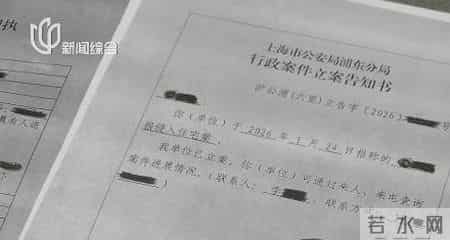 新闻综合
上海市公安局浦东分局
行政案件立案告知书
沪公浦(六里)立告字〔2026〕
你(单位)于2026年1月24日指称的
被侵入住宅案
我单位已立案。你(单位)可通过来人、来电查询
案件进展情况。(联系人: 李 联系方
若水网